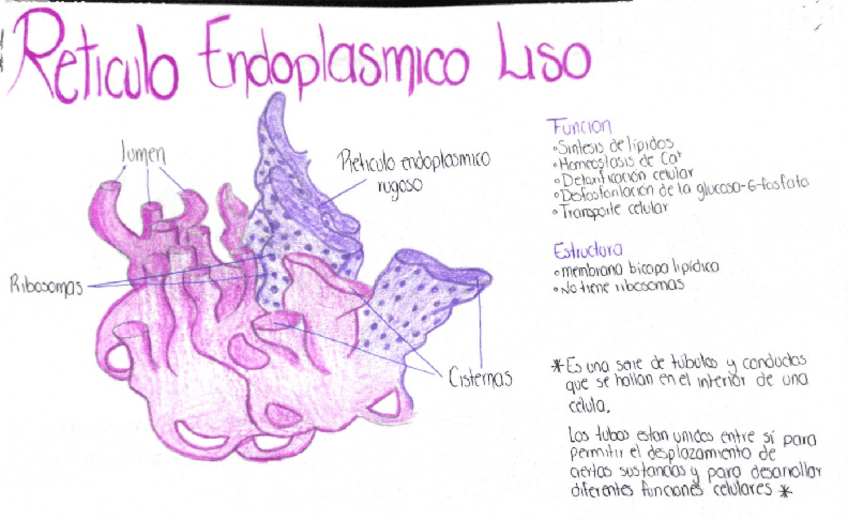 Reticulo Endoplasmico Liso
lumen
Reticulo endoplasmico
rugoso
Ribosomas
Cisternas
Funcion
°Sintesis de lipidos
°Homeostasis de Ca⁺
°Detoxificación celular
°Desfosforilación de la glucosa-6-fosfato
°Transporte celular
Estructura
°membrana bicapa lipídica
°No tiene ribosomas
*Es una serie de túbulos y conductos
que se hallan en el interior de una
célula.
Los tubos estan unidos entre sí para
permitir el desplazamiento de
ciertas sustancias y para desarrollar
diferentes funciones celulares *